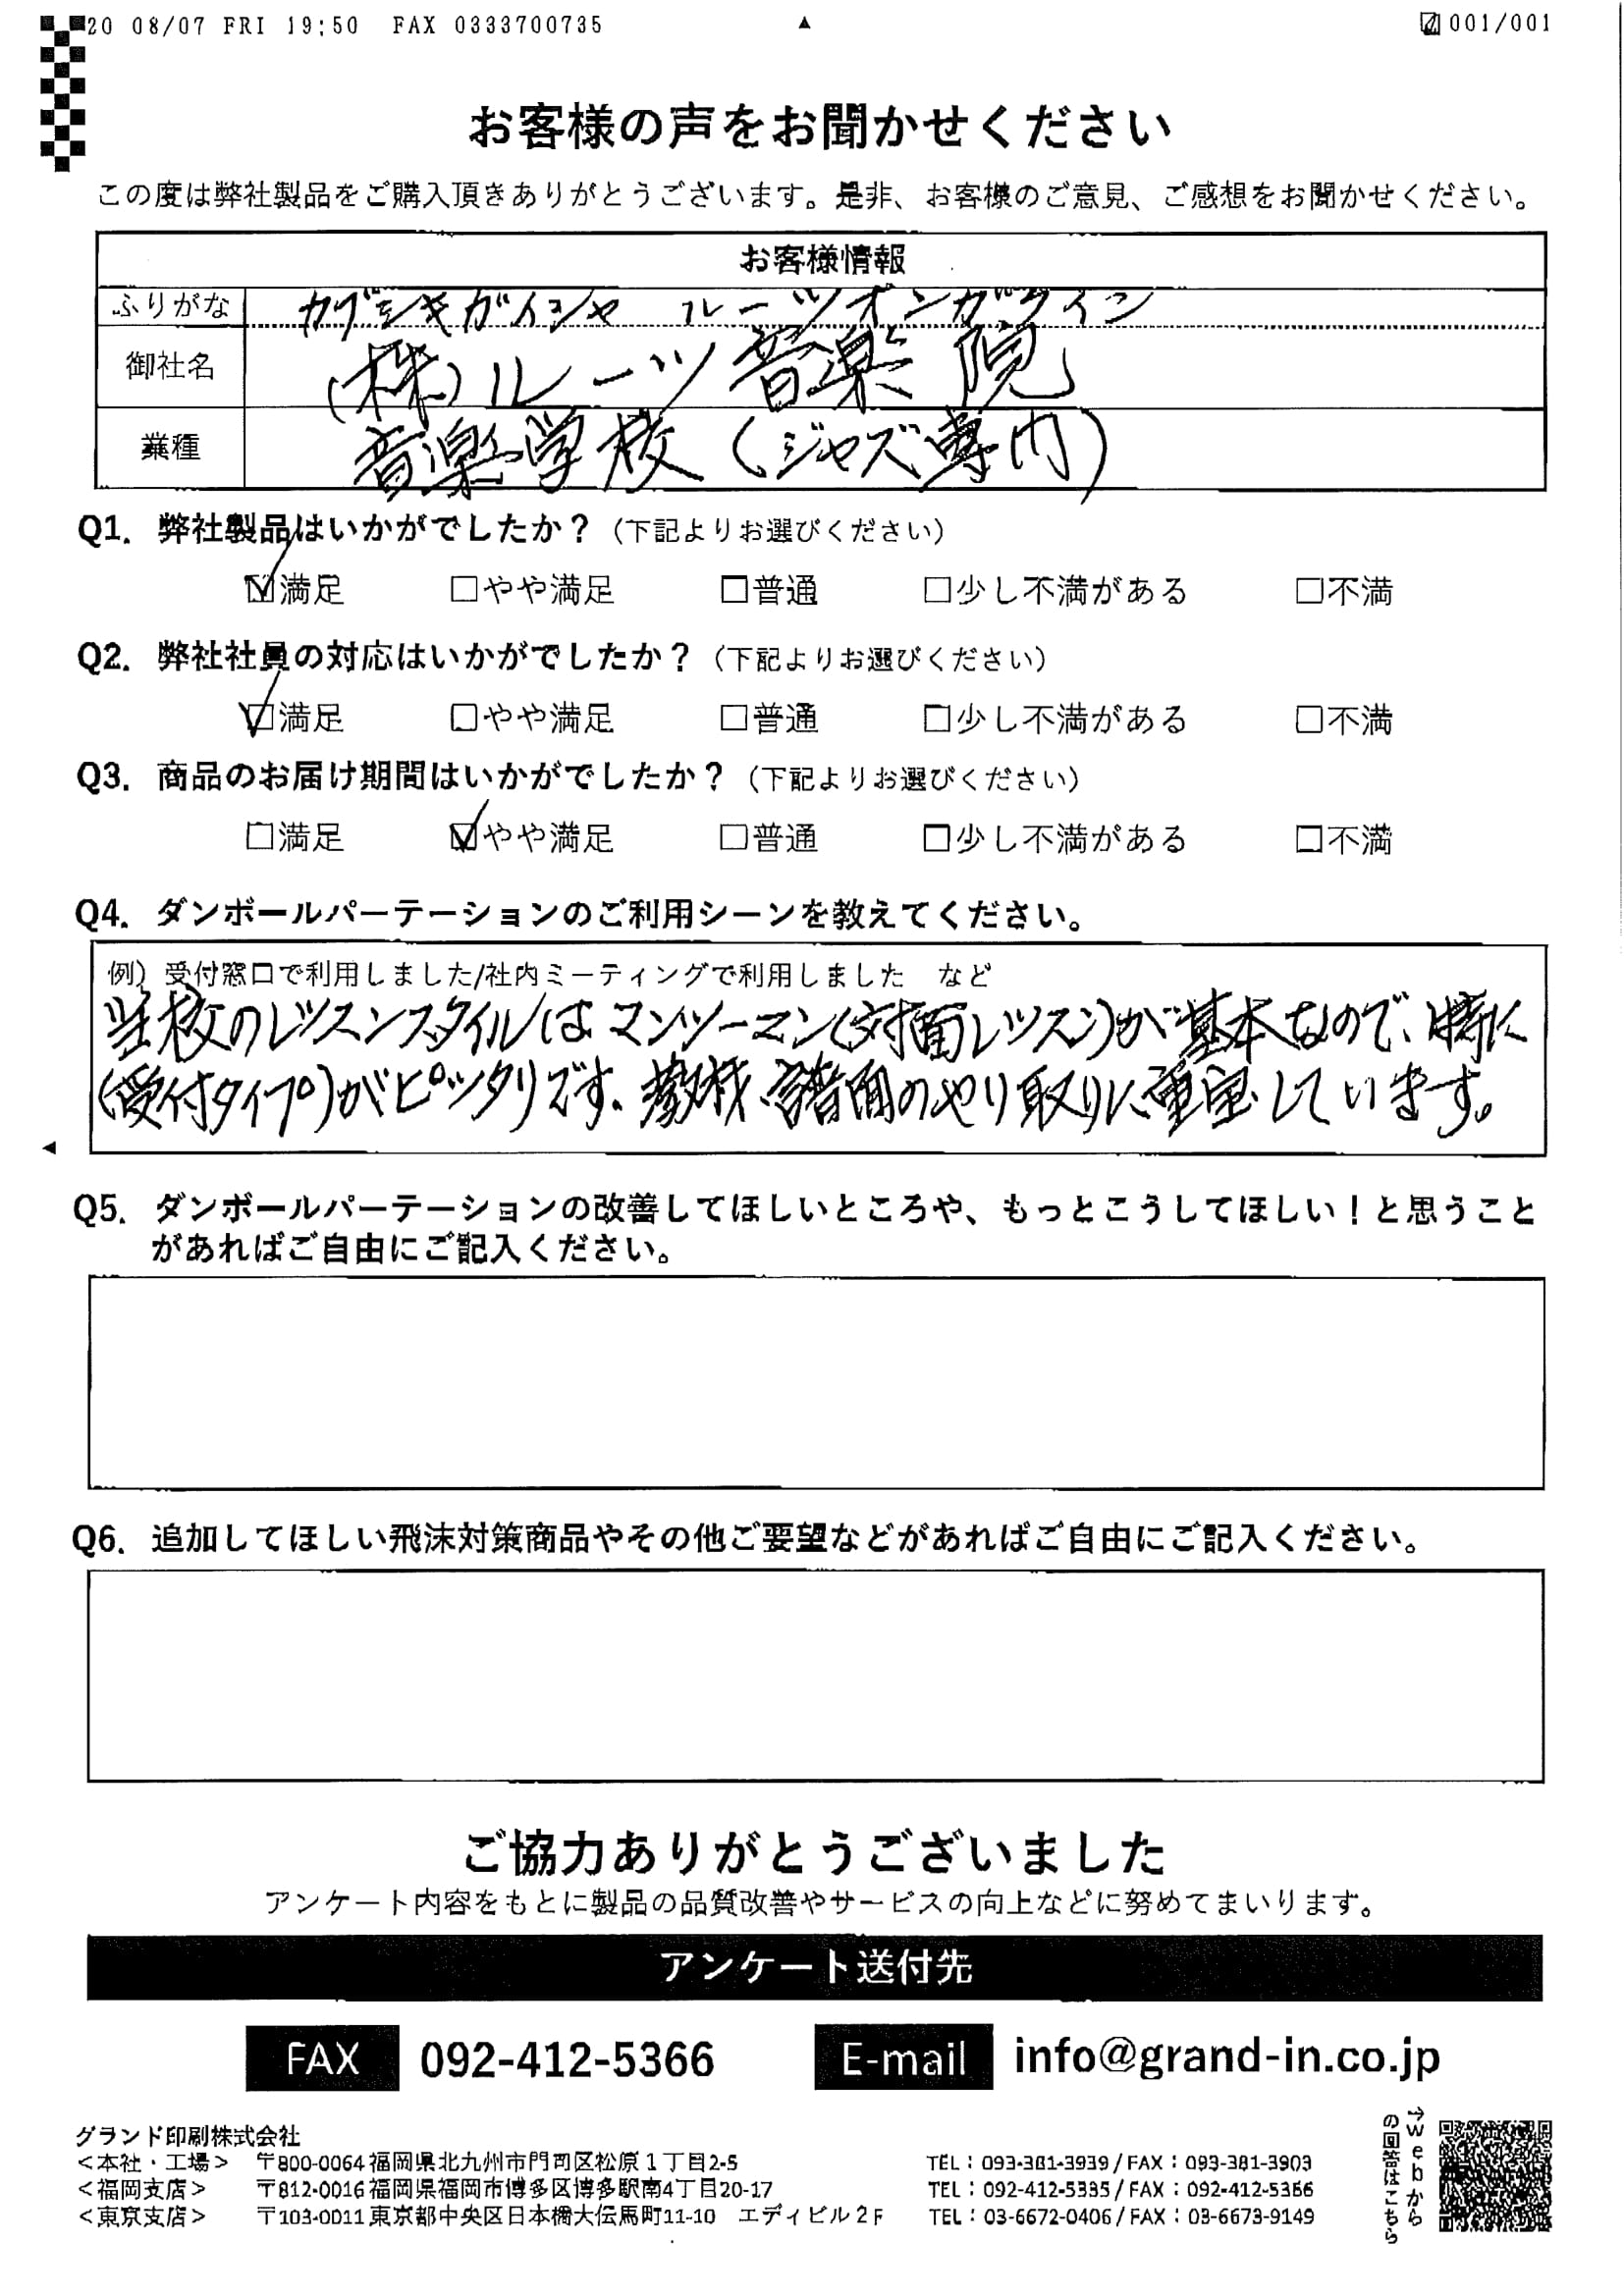 20 08/07 FRI 19:50 FAX 0333700735 ▲ 001/001
お客様の声をお聞かせください
この度は弊社製品をご購入頂きありがとうございます。是非、お客様のご意見、ご感想をお聞かせください。
お客様情報
ふりがな カブシキガイシャ ルーツオンガクイン
御社名 (株)ルーツ音楽院
業種 音楽学校(ジャズ専門)
Q1. 弊社製品はいかがでしたか?(下記よりお選びください)
☑満足 □やや満足 □普通 □少し不満がある □不満
Q2. 弊社社員の対応はいかがでしたか?(下記よりお選びください)
☑満足 □やや満足 □普通 □少し不満がある □不満
Q3. 商品のお届け期間はいかがでしたか?(下記よりお選びください)
□満足 ☑やや満足 □普通 □少し不満がある □不満
Q4. ダンボールパーテーションのご利用シーンを教えてください。
例)受付窓口で利用しました/社内ミーティングで利用しました など
当校のレッスンスタイルはマンツーマン(対面レッスン)が基本なので、特に
(受付タイプ)がピッタリです。教材、譜面のやり取りに重宝しています。
Q5. ダンボールパーテーションの改善してほしいところや、もっとこうしてほしい!と思うこと
があればご自由にご記入ください。
Q6. 追加してほしい飛沫対策商品やその他ご要望などがあればご自由にご記入ください。
ご協力ありがとうございました
アンケート内容をもとに製品の品質改善やサービスの向上などに努めてまいります。
アンケート送付先
FAX 092-412-5366 E-mail info@grand-in.co.jp
グランド印刷株式会社
<本社・工場> 〒800-0064 福岡県北九州市門司区松原1丁目2-5 TEL:093-381-3939 / FAX:093-381-3903
<福岡支店> 〒812-0016 福岡県福岡市博多区博多駅南4丁目20-17 TEL:092-412-5385 / FAX:092-412-5366
<東京支店> 〒103-0011 東京都中央区日本橋大伝馬町11-10 エディビル2F TEL:03-6672-0406 / FAX:03-6673-9149
→Webから
の回答はこちら